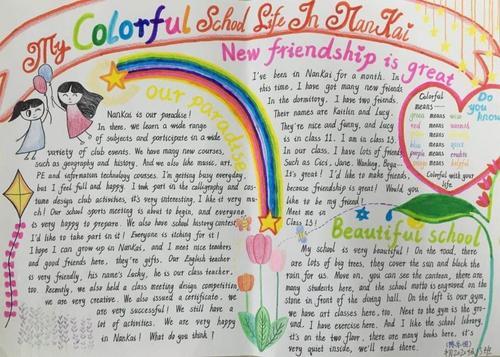 My Colorful School Life In NanKai
New friendship is great
our paradise
NanKai is our paradise!
In there, we learn a wide range
of subjects and participate in a wide
variety of club events. We have many new courses,
such as geography and history. And we also like music, art,
PE and information technology courses. I'm getting busy everyday,
but I feel full and happy. I took part in the calligraphy and cos-
tume design club activities, it's very interesting. I like it very mu-
ch! Our school sports meeting is about to begin, and everyone
is very happy to prepare. We also have school history contest,
I'd like to take part in it! Everyone is itching for it!
I hope I can grow up in NanKai, and I meet nice teachers
and good friends here, they're gifts. Our English teacher
is very friendly, his name's Lucky, he is our class teacher,
too. Recently, we also held a class meeting design competition,
we are very creative. We also issued a certificate, we
are very successful! We still have a
lot of activities. We are very happy
in NanKai! What do you think?
I've been in NanKai for a month. In
this time, I have got many new friends
In the dormitory, I have two friends.
Their names are Kaitlin and Lucy.
They're nice and funny, and Lucy
is in class 11. I am in class 13.
In our class, I have lots of friends
Such as Cici, Jane,
It's great! I'd like to make friends,
because friendship is great! Would you
like to be my friend!
Meet me
Class 13!
Do you
know
Colorful
means
green means
red means
means
blue means
purple means
means helpful
Colorful with your
life.
Beautiful school
My school is very beautiful. On the road, there
are lots of big trees, they cover the sun and black the
rain for us. Move on, you can see the canteen, there are
many students here, and the school motto is engraved on the
stone in front of the dining hall. On the left is our gym,
we have art classes here, too. Next to the gym is the gro-
und. I have exercise here. And I like the school library,
it's on the two floor, there are many books here. it's
very quiet inside, we'll read there.